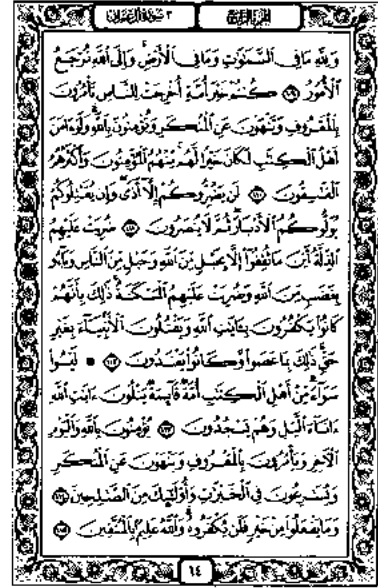 ٣ سورة آل عمران
الجزء الرابع
وَلِلَّهِ مَا فِي السَّمَٰوَٰتِ وَمَا فِي الْأَرْضِ ۚ وَإِلَى اللَّهِ تُرْجَعُ
الْأُمُورُ ﴿١٠٩﴾ كُنتُمْ خَيْرَ أُمَّةٍ أُخْرِجَتْ لِلنَّاسِ تَأْمُرُونَ
بِالْمَعْرُوفِ وَتَنْهَوْنَ عَنِ الْمُنكَرِ وَتُؤْمِنُونَ بِاللَّهِ ۗ وَلَوْ ءَامَنَ
أَهْلُ الْكِتَٰبِ لَكَانَ خَيْرًا لَّهُم ۚ مِّنْهُمُ الْمُؤْمِنُونَ وَأَكْثَرُهُمُ
الْفَٰسِقُونَ ﴿١١٠﴾ لَن يَضُرُّوكُمْ إِلَّا أَذًى ۖ وَإِن يُقَٰتِلُوكُمْ
يُوَلُّوكُمُ الْأَدْبَارَ ثُمَّ لَا يُنصَرُونَ ﴿١١١﴾ ضُرِبَتْ عَلَيْهِمُ
الذِّلَّةُ أَيْنَ مَا ثُقِفُوا إِلَّا بِحَبْلٍ مِّنَ اللَّهِ وَحَبْلٍ مِّنَ النَّاسِ وَبَاءُو
بِغَضَبٍ مِّنَ اللَّهِ وَضُرِبَتْ عَلَيْهِمُ الْمَسْكَنَةُ ۚ ذَٰلِكَ بِأَنَّهُمْ
كَانُوا يَكْفُرُونَ بِـَٔايَٰتِ اللَّهِ وَيَقْتُلُونَ الْأَنۢبِيَاءَ بِغَيْرِ
حَقٍّ ۚ ذَٰلِكَ بِمَا عَصَوا وَّكَانُوا يَعْتَدُونَ ﴿١١٢﴾ ۞ لَيْسُوا
سَوَاءً ۗ مِّنْ أَهْلِ الْكِتَٰبِ أُمَّةٌ قَائِمَةٌ يَتْلُونَ ءَايَٰتِ اللَّهِ
ءَانَاءَ الَّيْلِ وَهُمْ يَسْجُدُونَ ﴿١١٣﴾ يُؤْمِنُونَ بِاللَّهِ وَالْيَوْمِ
الْآخِرِ وَيَأْمُرُونَ بِالْمَعْرُوفِ وَيَنْهَوْنَ عَنِ الْمُنكَرِ
وَيُسَٰرِعُونَ فِي الْخَيْرَٰتِ وَأُولَٰئِكَ مِنَ الصَّٰلِحِينَ ﴿١١٤﴾
وَمَا يَفْعَلُوا مِنْ خَيْرٍ فَلَن يُكْفَرُوهُ ۗ وَاللَّهُ عَلِيمٌۢ بِالْمُتَّقِينَ ﴿١١٥﴾
٦٤